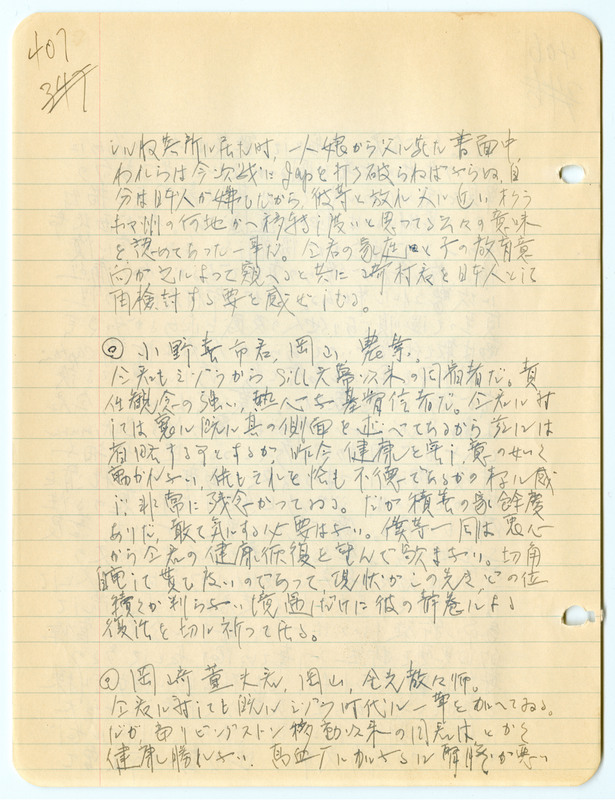 407
347
いル收容所に居た時、一人娘から父に宛た書面中
われらは今次戦にJapを打ち破らねばならぬ、自
分は日本人が嫌しだから彼等と放れ父に近い
州の何地かへ移轉し度いと思つてる云々の意味
を認めてあつた一事だ。仝君の家庭と子の教育意
向が之によつて観へると共に 村君を日本人として
再検討する要を感ぜしむる。
◎ 小野 市君、岡山、農業。
仝君もミゾラからSill 以来の同宿者だ。責
任観念の強い、熱心な基督信者だ。仝君に対
しては既に其の側面を述べてあるから茲には
省略する事とするが、昨今健康を害し、意の如く
働かれない、何もそれを恰も不徳であるかの様に感
じ非常に残念がつてゐる。だが積善の家餘慶
ありだ、敢て気にする必要はない。僕等一同は忠心
から仝君の健康恢復を望んで歇まない。切角
自重して貰ひ度いのであつて、現状がこの先き、どの位
續くか判らない境遇だけに彼の静養による
復活を切に祈つて居る。
◎ 岡崎 太君、岡山、金光教々師。
仝君に対しても既にミゾラ時代に一筆を加へてゐる。
だが、当リビングストン移動以来の同君はとかく
健康勝れない、高血圧に加ふるに が悪い